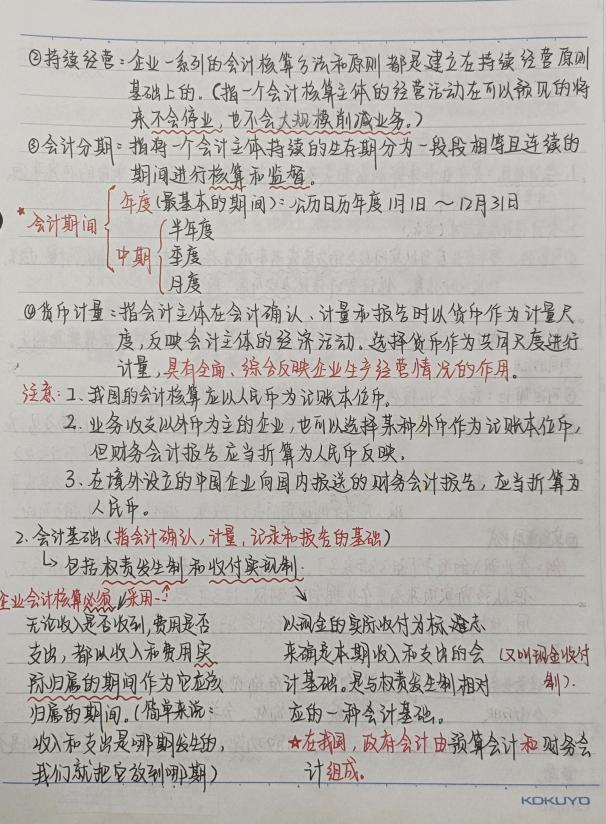 ②持续经营：企业一系列的会计核算方法和原则都是建立在持续经营原则
基础上的.（指一个会计核算主体的经营活动在可以预见的将
来不会停业，也不会大规模削减业务。）
③会计分期：指将一个会计主体持续的生存期分为一段段相等且连续的
期间进行核算和监督。
★会计期间
年度（最基本的期间）：公历日历年度1月1日～12月31日
中期
半年度
季度
月度
④货币计量：指会计主体在会计确认、计量和报告时以货币作为计量尺
度，反映会计主体的经济活动。选择货币作为共同尺度进行
计量，具有全面、综合反映企业生产经营情况的作用。
注意：1、我国的会计核算应以人民币为记账本位币。
2、业务收支以外币为主的企业，也可以选择某种外币作为记账本位币，
但财务会计报告应当折算为人民币反映。
3、在境外设立的中国企业向国内报送的财务会计报告，应当折算为
人民币。
2、会计基础（指会计确认，计量，记录和报告的基础）
↳包括权责发生制和收付实现制.
企业会计核算必须采用↑
无论收入是否收到，费用是否
支出，都以收入和费用实
际归属的期间作为它应该
归属的期间。（简单来说：
收入和支出是哪期发生的，
我们就把它放到哪期）
以现金的实际收付为标志
来确定本期收入和支出的会
计基础。是与权责发生制相对
应的一种会计基础。
（又叫现金收付
制）.
★在我国，政府会计由预算会计和财务会
计组成。
KOKUYO